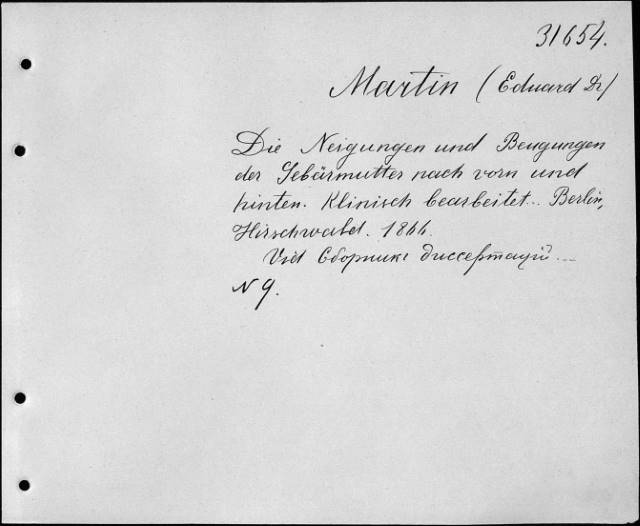 31654.
Martin (Eduard Dr)
Die Neigungen und Beugungen
der Gebärmutter nach vorn und
hinten. Klinisch bearbeitet... Berlin,
Hirschwald. 1866.
Vid Сборникъ диссертацій...
N 9.